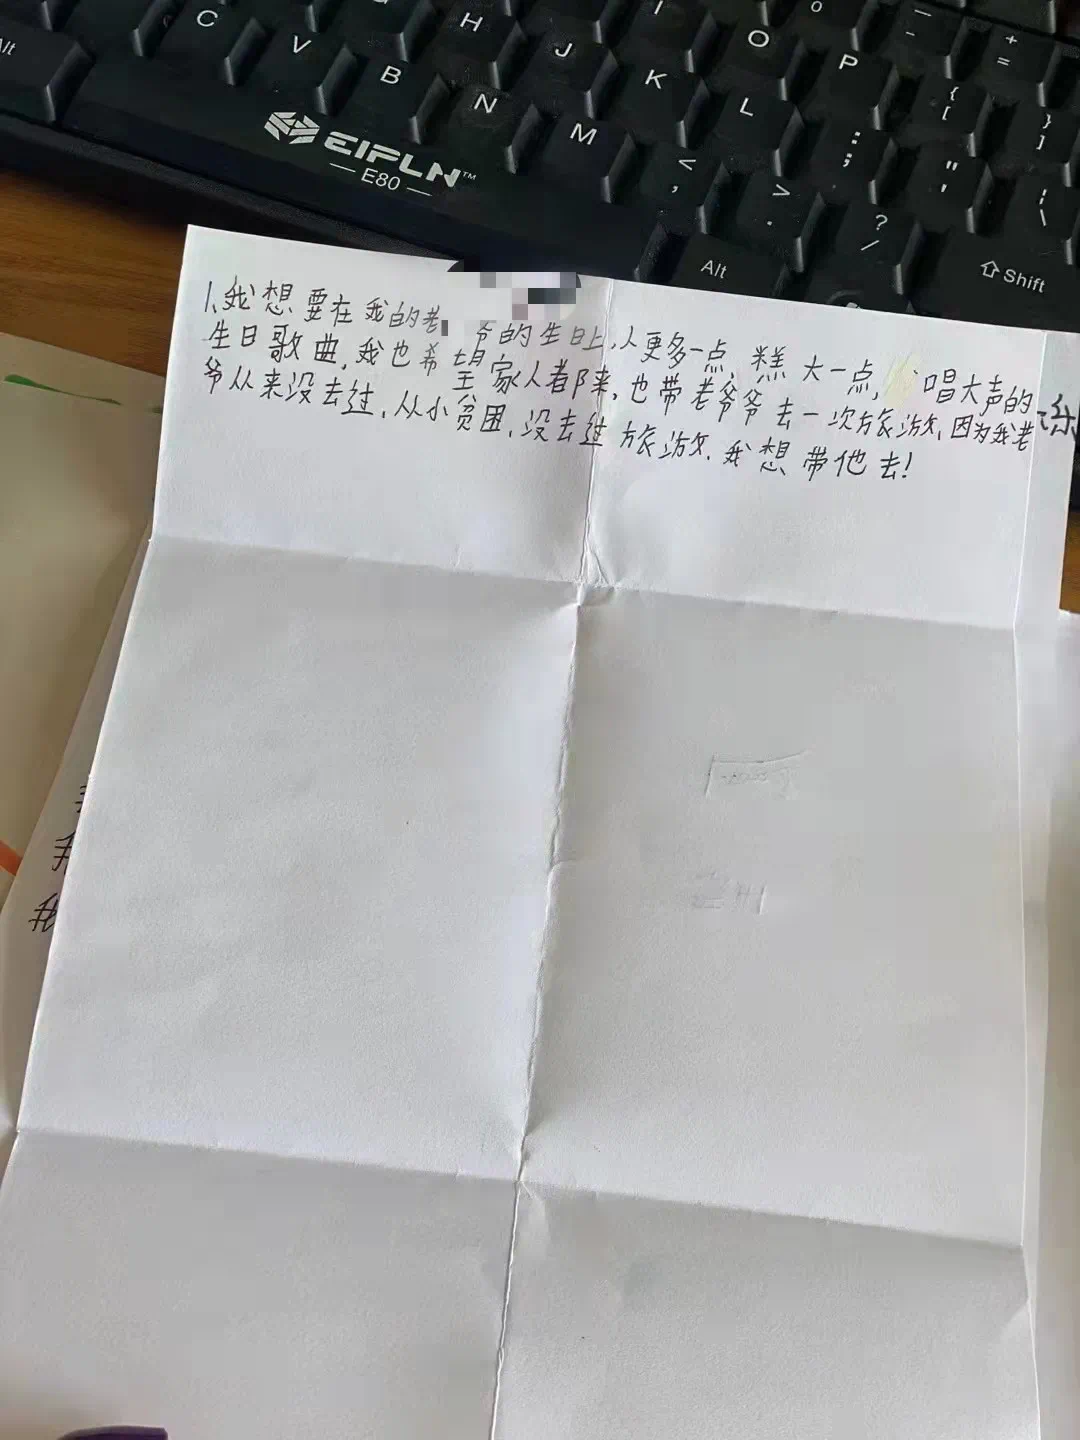 Alt C V B H N J M I K O L P o — - + =
{ [ } ] : ; " ' | \ < , > . ? /
EIPLN™
— E80 —
Alt ⇧ Shift
1、我想要在我的老 爷的生日上,人更多一点,糕大一点, 唱大声的
生日歌曲,我也希望家人都来,也带老爷爷去一次旅游,因为我老
爷从来没去过,从小贫困,没去过旅游,我想带他去!
我